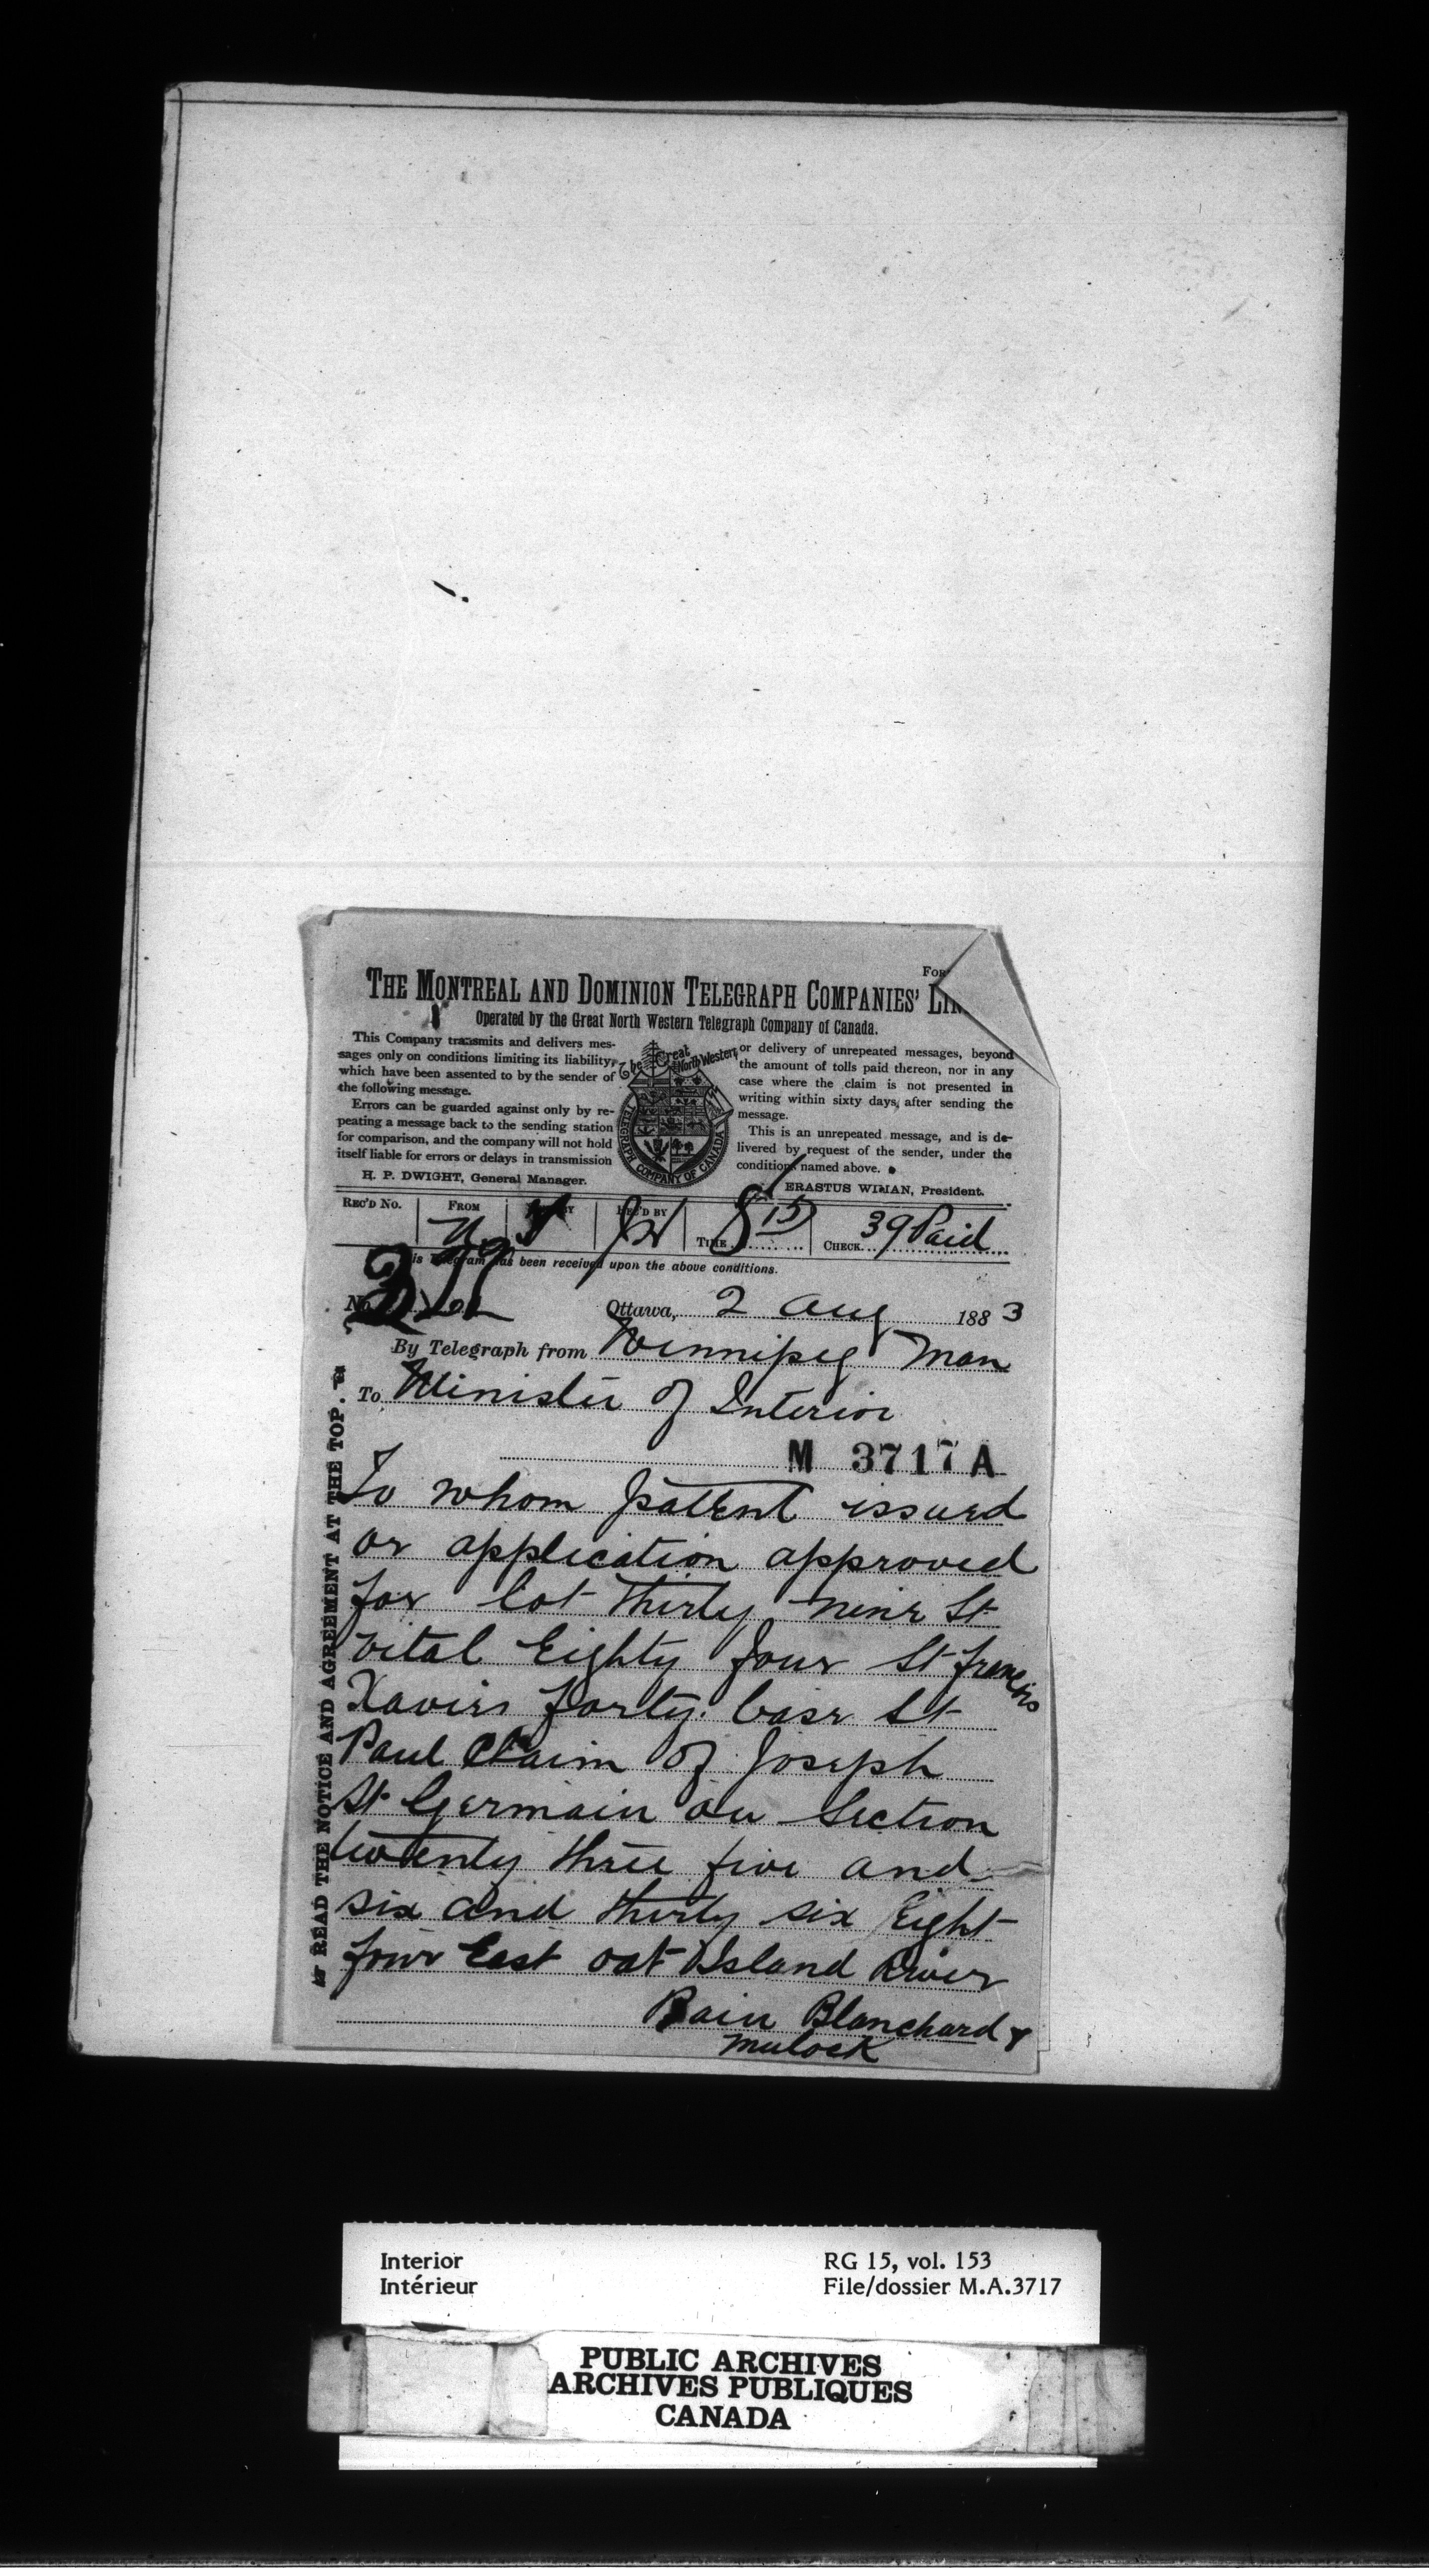 For
THE MONTREAL AND DOMINION TELEGRAPH COMPANIES' LIN
Operated by the Great North Western Telegraph Company of Canada.
This Company transmits and delivers mes-
sages only on conditions limiting its liability,
which have been assented to by the sender of
the following message.
Errors can be guarded against only by re-
peating a message back to the sending station
for comparison, and the company will not hold
itself liable for errors or delays in transmission
H. P. DWIGHT, General Manager.
The Great North Western
TELEGRAPH COMPANY OF CANADA
or delivery of unrepeated messages, beyond
the amount of tolls paid thereon, nor in any
case where the claim is not presented in
writing within sixty days, after sending the
message.
This is an unrepeated message, and is de-
livered by request of the sender, under the
conditions named above.
ERASTUS WIMAN, President.
REC'D No. FROM BY REC'D BY TIME 8 15 CHECK 39 Paid
is Telegram has been received upon the above conditions.
No. Ottawa, 2 Aug 1883
By Telegraph from Winnipeg Man
To Minister of Interior
M 3717 A
To whom patent issued
or application approved
for lot thirty nine St
Vital Eighty four St Francis
Xavier forty. base St
Paul Claim of Joseph
St Germain on Section
twenty three five and
six and thirty six Eight
four East oat Island River
Bain Blanchard &
Mulock
READ THE NOTICE AND AGREEMENT AT THE TOP.
Interior
Intérieur
RG 15, vol. 153
File/dossier M.A.3717
PUBLIC ARCHIVES
ARCHIVES PUBLIQUES
CANADA